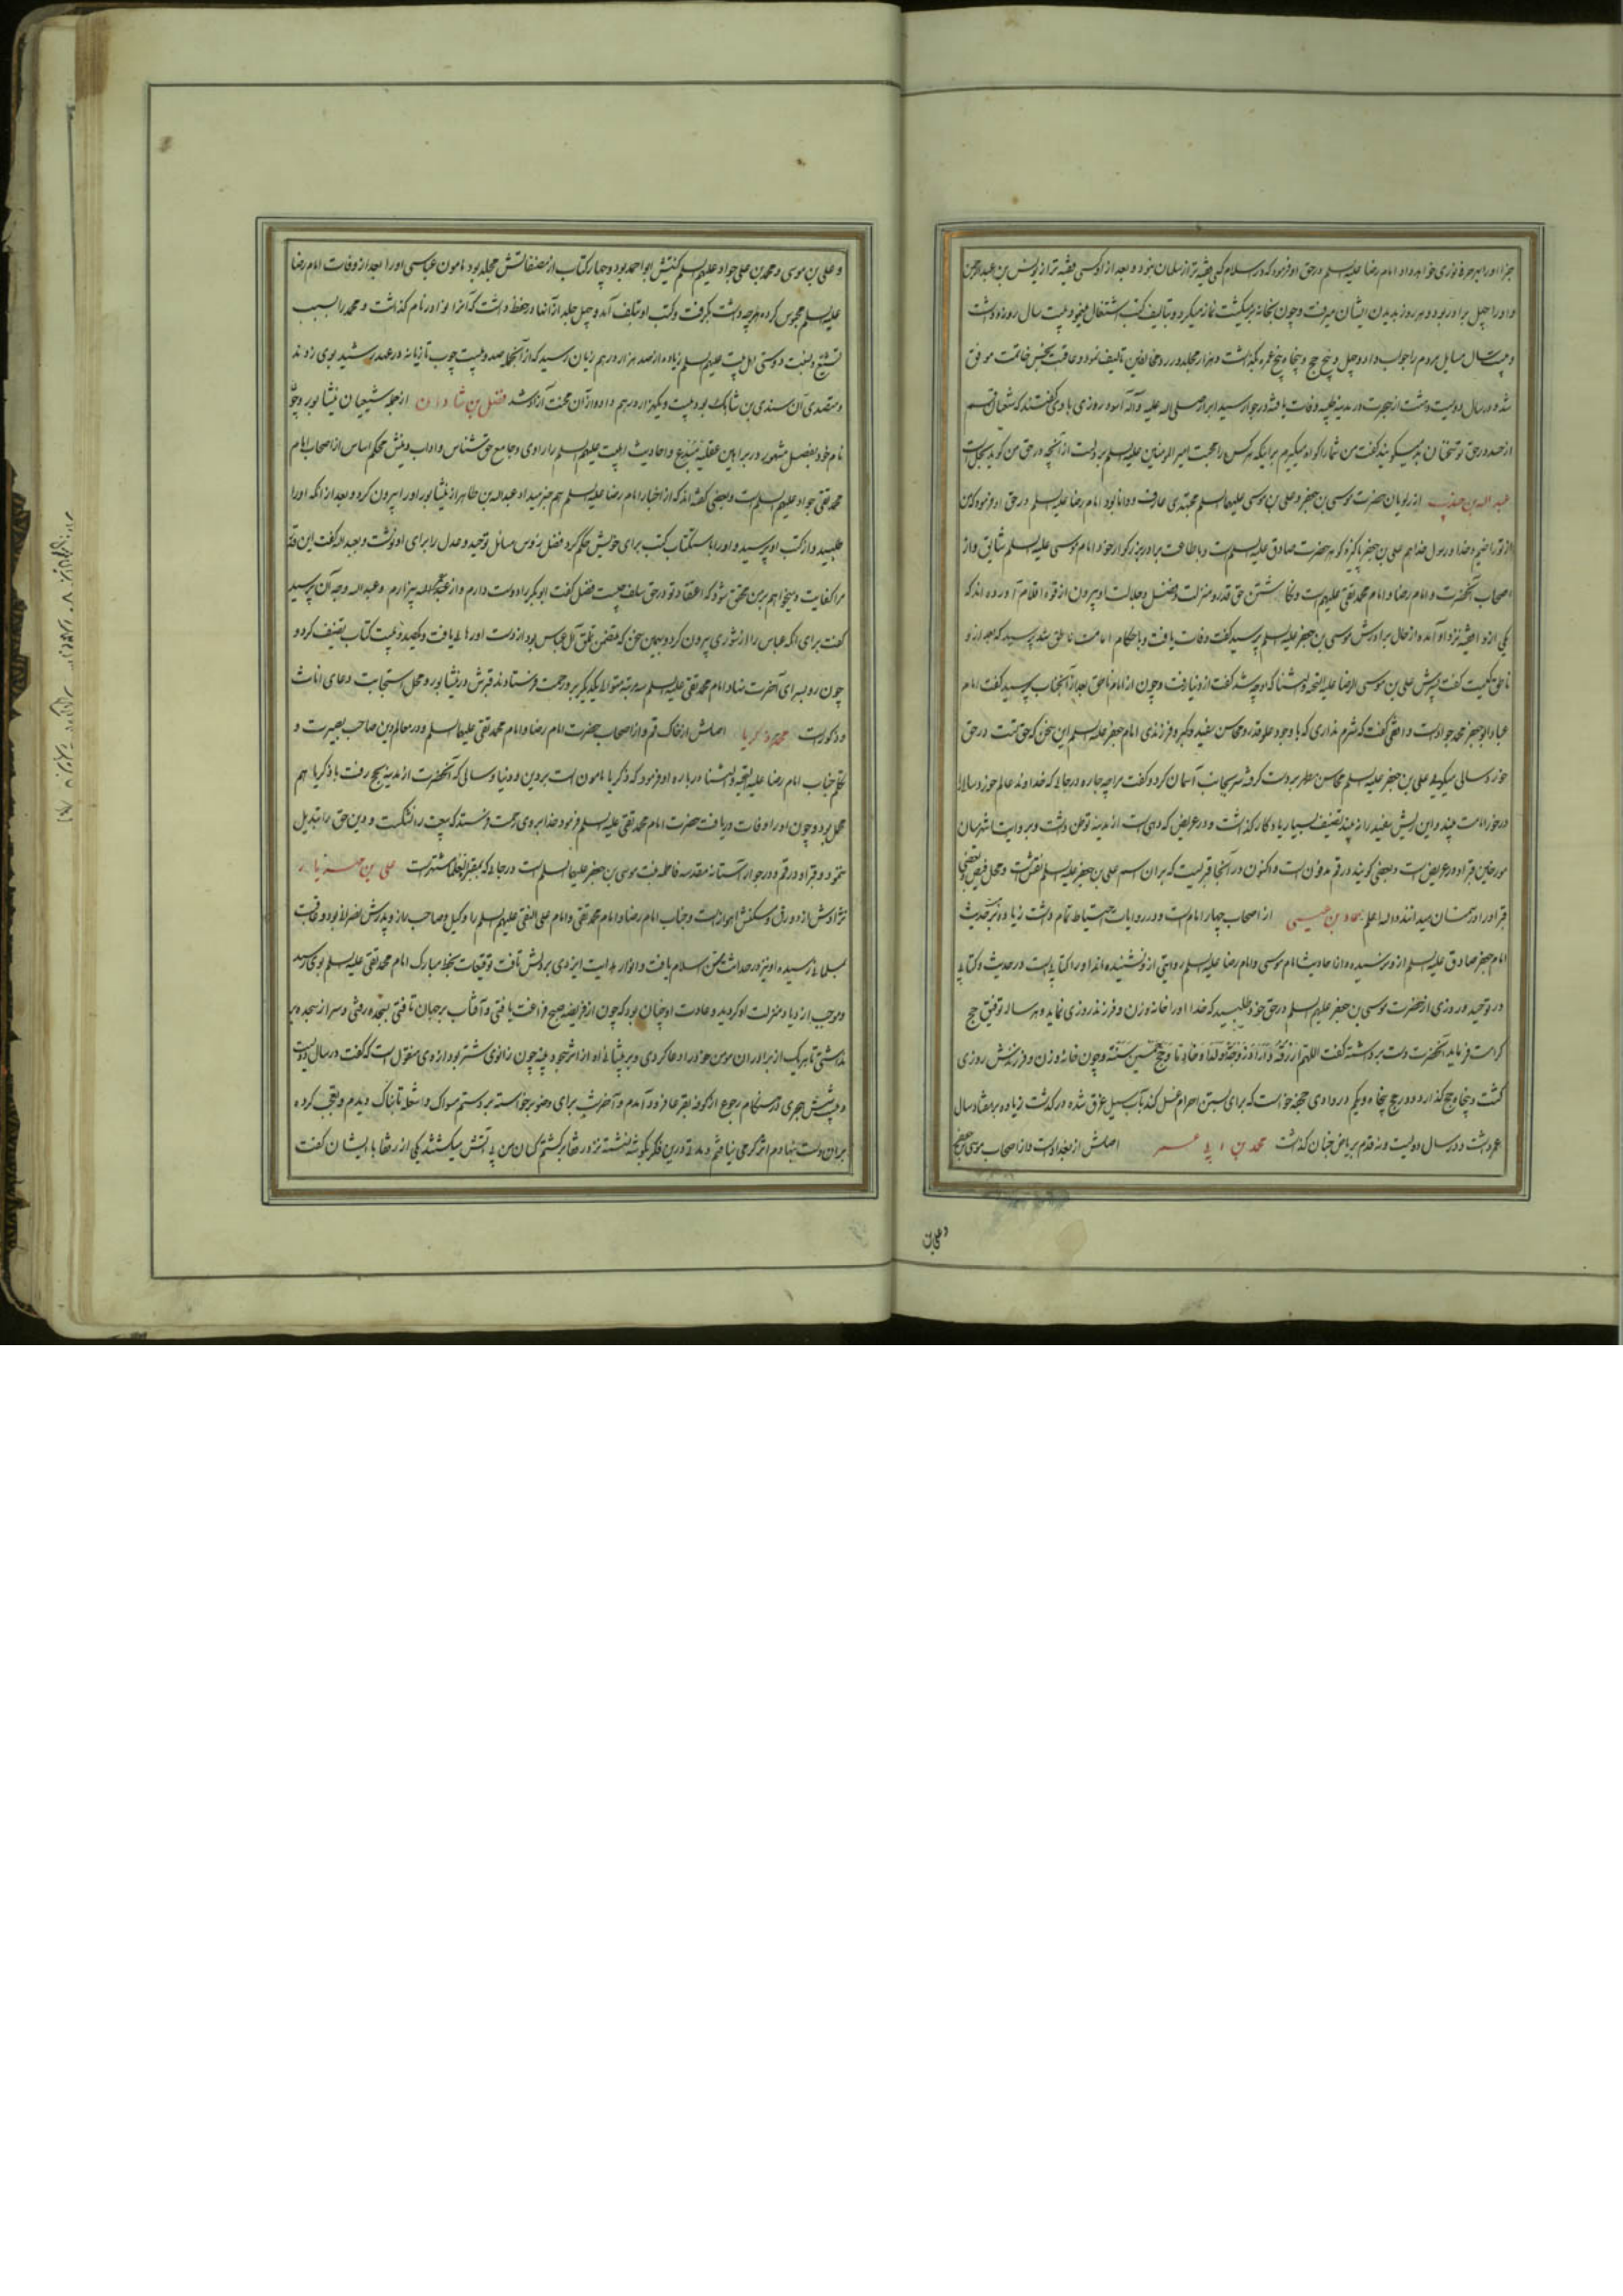 جزا او را بهر حرفه نوری خواهد داد امام رضا علیه السلم در حق او فرمود که در اسلام کسی فقیه تر از سلمان نبود و بعد از او کسی فقیه تر از یونس بن عبدالرحمن
و او را چهل برادر بود و هر روز بدیدن ایشان میرفت و چون بخانه برمیگشت نماز میکرد و بتالیف کتب اشتغال مینمود و بیست سال روزه داشت
و بیست سال مسایل مردم را جواب داد و چهل و پنج حج و پنجاه و پنج عمره بگذاشت و هزار مجلد در رد مخالفین تالیف نمود و عاقبت بحسن خاتمت موفق
شد و در سال دویست و هشت از هجرت در مدینه طیبه وفات یافته در جوار سید ابرار صلی الله علیه و آله آسود روزی با وی گفتند که شیعیان قم
از حد در حق تو سخنان بد میگویند گفت من شما را گواه میگیرم براینکه هر کس را محبت امیر المومنین علیه السلم بر دلست از آنچه در حق من گوید بحل است
عبد الله بن جندب از راویان حضرت موسی بن جعفر و علی بن موسی علیهما السلم مجتهدی عارف و دانا بود امام رضا علیه السلم در حق او فرمود که من
از تو راضیم و خدا و رسول خدا هم علی بن جعفر پاکیزه گوهر حضرت صادق علیه السلم است و باطاعت برادر بزرگوار خود امام موسی علیه السلم شایق و از
اصحاب آنحضرت و امام رضا و امام محمد تقی علیهم است و نگاشتن حق قدر و منزلت و فضل و جلالت او بیرون از قوه اقلام آورده اند که
یکی از واقفیه نزد او آمد و از حال برادرش موسی بن جعفر علیه السلم پرسید گفت وفات یافت و باحکام امامت ناطق شد پرسید که بعد از او
ناطق کیست گفت پسرش علی بن موسی الرضا علیه التحیه و الثنا گفت او چه شد گفت از دنیا رفت و چون از امام ناطق بعد از آنجناب پرسید گفت امام
عباد ابو جعفر محمد جواد است واقفی گفت که شرم نداری که با وجود علو قدر و محاسن سفید و کبر و فرزندی امام جعفر علیه السلم این سخن که حق تست در حق
خورد سالی میگویی علی بن جعفر علیه السلم محاسن مطهر بر دست گرفته سر بجانب آسمان کرد و گفت مرا چه چاره در جائی که خداوند عالم خورد سالی را
در خور امامت بیند و این ریش سفید را نه بیند تصنیف بسیار یادگار گذاشت و در عریض که دهی است از مدینه توطن داشت و بروایت اشهر میان
مورخین قبر او در عریض است و بعضی گویند در قم مدفون است و اکنون در آنجا قبریست که بران اسم علی بن جعفر علیه السلم نقش است و محل فیض و بعضی
قبر او را در سمنان میدانند والله اعلم حماد بن عیسی از اصحاب چهار امام است و در روایات احتیاط تمام داشت زیاده بر حدیث
امام جعفر صادق علیه السلم از او نرسیده و اما احادیث امام موسی و امام رضا علیه السلم روایتی از او نشنیده اند او را کتابی است در حدیث و کتابی
در توحید و روزی از حضرت موسی بن جعفر علیهم السلم در حق خود طلبید که خدا او را خانه و زن و فرزند روزی نماید و هر ساله توفیق حج
کرامت فرماید آنحضرت دست برداشته گفت اللهم ارزقه دارا و زوجة و ولدا و خادما و حج خمسین سنة و چون خانه و زن و فرزندش روزی
گشت و پنجاه حج گذارد در حج پنجاه و یکم در وادی جحفه خواست که برای بستن احرام غسل کند بآب سیل غرق شده درگذشت زیاده بر هفتاد سال
عمر داشت و در سال دویست و نه قدم بریاض جنان گذاشت محمد بن ابی عمیر اصلش از بغداد است و از اصحاب موسی بن جعفر
و علی بن
و علی بن موسی و محمد بن علی جواد علیهم السلم کنیتش ابو احمد بود و چهار کتاب از مصنفاتش مجلد بود مامون عباسی او را بعد از وفات امام رضا
علیه السلم محبوس کرده هر چه داشت بگرفت و کتب او تلف آمد و چهل جلد از آنها در حفظ داشت که آنرا نوادر نام گذاشت و محمد را بسبب
تشیع و نسبت دوستی اهل بیت علیهم السلم زیاده از صد هزار درهم زیان رسید که از آنجمله صد و بیست چوب تازیانه در عهد رشید بوی زدند
و متصدی آن سندی بن شاهک بود بیست و یکهزار درهم داد و از آن محنت آزاد شد فضل بن شاذان از عظماء شیعیان نیشابور و چون
نام خود بفضل مشهور در براهین عقلیه متتبع و احادیث اهلبیت علیهم السلم را راوی و جامع حق شناس و اداب دینش محکم اساس از اصحاب امام
محمد تقی جواد علیهم السلم است و بعضی گفته اند که از اخبار امام رضا علیه السلم هم خبر میداد عبدالله بن طاهر از نیشابور او را بیرون کرد و بعد از انکه او را
طلبید و از کتب او پرسید و او را باستکتاب کتب برای خویش حکم کرد فضل رؤس مسائل توحید و عدل را برای او نوشت و عبدالله گفت این قدر
مرا کفایت و میخواهم بر من محقق شود که اعتقاد تو در حق سلف چیست فضل گفت ابوبکر را دوست دارم و از عمر بیزارم و عبدالله وجه آن پرسید
گفت برای آنکه عباس را از شوری بیرون کرد و بهمین سخن که متضمن تملق آل عباس بود از دست او رهایی یافت و یکصد و بیست کتاب تصنیف کرد و
چون رو بسرای آخرت نهاد امام محمد تقی علیه السلم سه مرتبه متوالی یکدیگر بر و رحمت فرستادند قبرش در نیشابور و محل استجابت دعای اناث
و ذکور است محمد زکریا اصلش از خاک قم و از اصحاب حضرت امام رضا و امام محمد تقی علیهما السلم و در معالم دین صاحب بصیرت و
جناب امام رضا علیه التحیه و الثناء در باره او فرمود که زکریا مامون است بر دین و دنیا و سالی که آنحضرت از مدینه بحج رفت با زکریا هم
محمل بود و چون او را وفات دریافت حضرت امام محمد تقی علیه السلم فرمود خدا بروی رحمت فرستد که بیعت را نشکست و دین حق را تبدیل
ننمود و قبر او در قم و در جوار آستانه مقدسه فاطمه بنت موسی بن جعفر علیهما السلم است در جائی که مشتهر است علی بن مهزیار
نژادش از دورق و مسکنش اهواز است و جناب امام رضا و امام محمد تقی و امام علی النقی علیهم السلم را وکیل و صاحب راز و پدرش نصرانی بود و عاقبت
باسلام رسیده او نیز در حداثت سن اسلام یافت و انوار هدایت ایزدی بر دلش تافت توقیعات بخط مبارک امام محمد تقی علیه السلم بوی رسید
و موجب ازدیاد منزلت او گردید و عادت او چنان بود که چون از فریضه صبح فراغت یافتی و آفتاب بر جهان تافتی بسجده رفتی و سر از سجده بر
نداشتی تا هر یک از برادران مومن خود را دعا کردی و بر پیشانی او از اثر سجود پینه چون زانوی شتر بود از وی منقول است که گفت در سال دویست
و بیست و شش هجری در هنگام رجوع از کوفه بقرعا فرود آمدم و آخر شب برای وضو برخواسته بر دستم مسواک و شعله تابناک دیدم و تعجب کرده
بران دست نهادم اثر گرمی نیافتم و درین فکر بگوشه نشسته نزد رفقا برگشتم کسان من بی آتش میگشتند یکی از رفقا با ایشان گفت